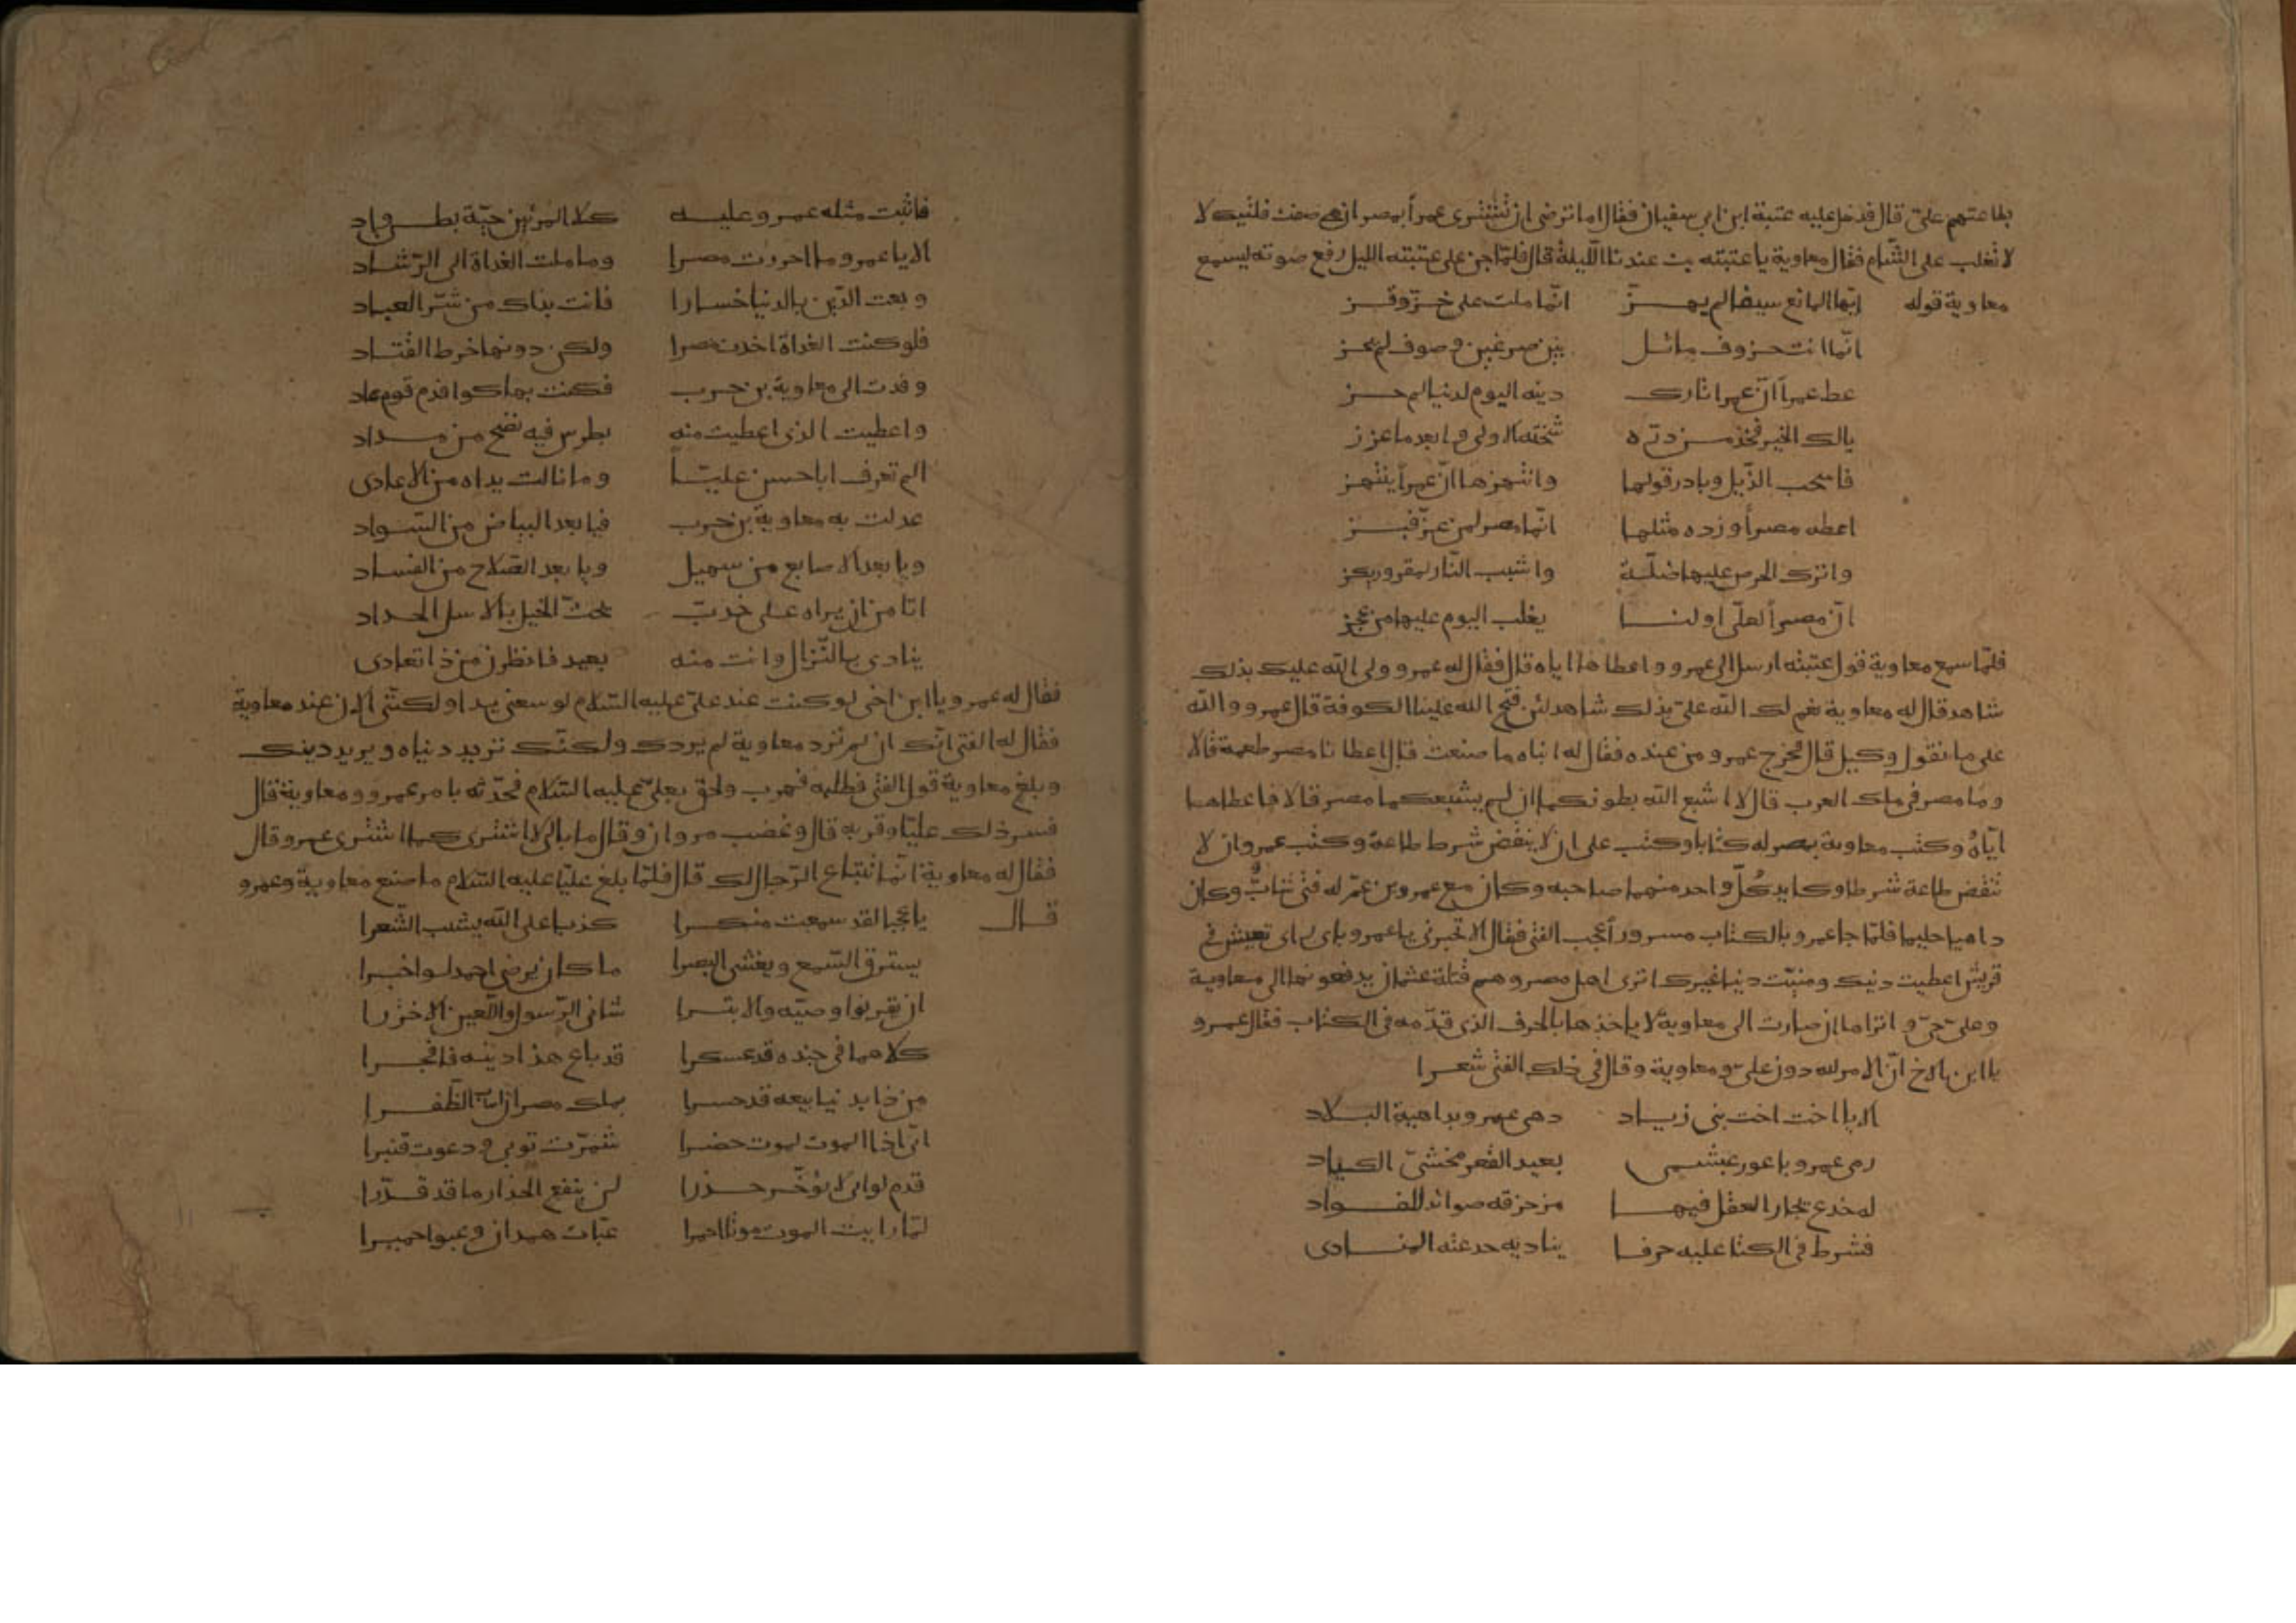 بطاعتهم عليّ قال فدخل عليه عتبة ابن ابي سفيان فقال اما ترضى ان تشترى عمرأ بمصر ان هي صفت فليتك لا
لا تغلب على الشام فقال معاوية يا عتبته بت عندنا اللّيلة قال فلمّا جن على عتبته الليل رفع صوته ليسمع
معاوية قوله ايّها المانع سيفا لم يهزّ انّما ملت على خزّ وقز
انّما انت خروف ماثل بين ضرعين وصوف لم يجز
اعط عمرأ انّ عمرا تارك دينه اليوم لدنيا لم تحز
يالك الخير فخذ من درّه شخته الاولى وابعد ما غرز
فاسحب الذّيل وبادر قولها وانتهزها انّ عمرأ ينتهز
اعطه مصرأ وزده مثلها انّما مصر لمن عزّ فبز
واترك الحرص عليها ضلّة واشبب النّار لمقرور يكز
انّ مصرأ لعليّ او لنا يغلب اليوم عليها من عجز
فلمّا سمع معاوية قول عتبته ارسل الى عمرو واعطاها اياه قال فقال له عمرو ولى الله عليك بذلك
شاهد قال له معاوية نعم لك الله عليّ بذلك شاهد لئن فتح الله علينا الكوفة قال عمرو والله
على ما نقول وكيل قال فخرج عمرو من عنده فقال له ابناه ما صنعت قال اعطانا مصر طعمة قالا
وما مصر في ملك العرب قال لا اشبع الله بطونكما ان لم يشبعكما مصر قال فاعطاها
ايّاهُ وكتب معاوية بمصر له كتابا وكتب على ان لا ينقض شرط طاعة وكتب عمرو ان لا
تنقض طاعة شرطا وكايد كُلّ واحد منهما صاحبه وكان مع عمرو بن عمّ له فتى شابٌّ وكان
داهيا حليما فلمّا جا عمرو بالكتاب مسرورأ عجب الفتى فقال الا تخبرني يا عمرو باى راى تعيش في
قريش اعطيت دنيك ومنيّت دنيا غيرك اترى اهل مصر وهم قتلة عثمان يدفعونها الى معاوية
وعليّ حيّ واتراها ان صارت الى معاوية لا ياخذها بالحرف الذى قدّمه في الكتاب فقال عمرو
يا ابن الاخ انّ الامر لله دون عليّ ومعاوية وقال في ذلك الفتى شعرا
الا يا اخت اخت بني زياد دهى عمرو بداهية البلاد
رمى عمرو باعور عبشمى بعيد القعر مخشيّ الكياد
له خدع يحار العقل فيها مزخرفه صوائد للفواد
فشرط في الكتا عليه حرفا يناديه خدعته المنادى
فاثبت مثله عمرو عليه كلا المرئين حيّة بطن واد
الا يا عمرو ما احرزت مصرا وما ملت الغداة الى الرّشاد
وبعت الدّين بالدنيا خسارا فانت بذاك من شرّ العباد
فلو كنت الغداة اخذت مصرا ولكن دونها خرط القتاد
وفدت الى معاوية بن حرب فكنت بها كوافد قوم عاد
واعطيت الذى اعطيت منه بطرس فيه نضح من مداد
الم تعرف ابا حسن عليّاً وما نالت يداه من الاعادى
عدلت به معاوية بن حرب فيا بعد البياض من السّواد
ويا بعد الاصابع من سهيل ويا بعد الصّلاح من الفساد
اتا من ان يراه على خدبّ يحثّ الخيل بالاسل الحداد
ينادى بالنّزال وانت منه بعيد فانظرن من ذا تعادى
فقال له عمرو يا ابن اخى لو كنت عند عليّ عليه السّلام لوسعنى ولكنّنى الان عند معاوية
فقال له الفتى انّك ان لم ترد معاوية لم يردك ولكنّك تريد دنياه ويريد دينك
وبلغ معاوية قول الفتى فطلبه فهرب ولحق بعليّ عليه السّلام فحدّثه بامر عمرو ومعاوية قال
فسر ذلك عليّا وقربه قال وغضب مروان وقال ما بالى لا اشترى كما اشترى عمرو قال
فقال له معاوية انّما تبتاع الرّجال لك قال فلمّا بلغ عليّا عليه السّلام ما صنع معاوية وعمرو
قال يا عجبا لقد سمعت منكرا كذبا على الله يشيب الشّعرا
يسترق السّمع ويغشى البصرا ما كان يرضى احمد لو اخبرا
ان يقرنوا وصيّه والابترا شانى الرّسول واللّعين الاخزرا
كلاهما في جنده قد عسكرا قد باع هذا دينه فافجرا
من ذا بدنيا بيعه قد خسرا بملك مصر ان اصاب الظّفرا
انّى اذا الموت لموت حضرا شمّرت ثوبى ودعوت قنبرا
قدم لوائى لا تؤخّر حذرا لن ينفع الحذار ما قد قدّرا
لمّا رايت الموت موتا احمرا عبّات همدان وعبوا حميرا